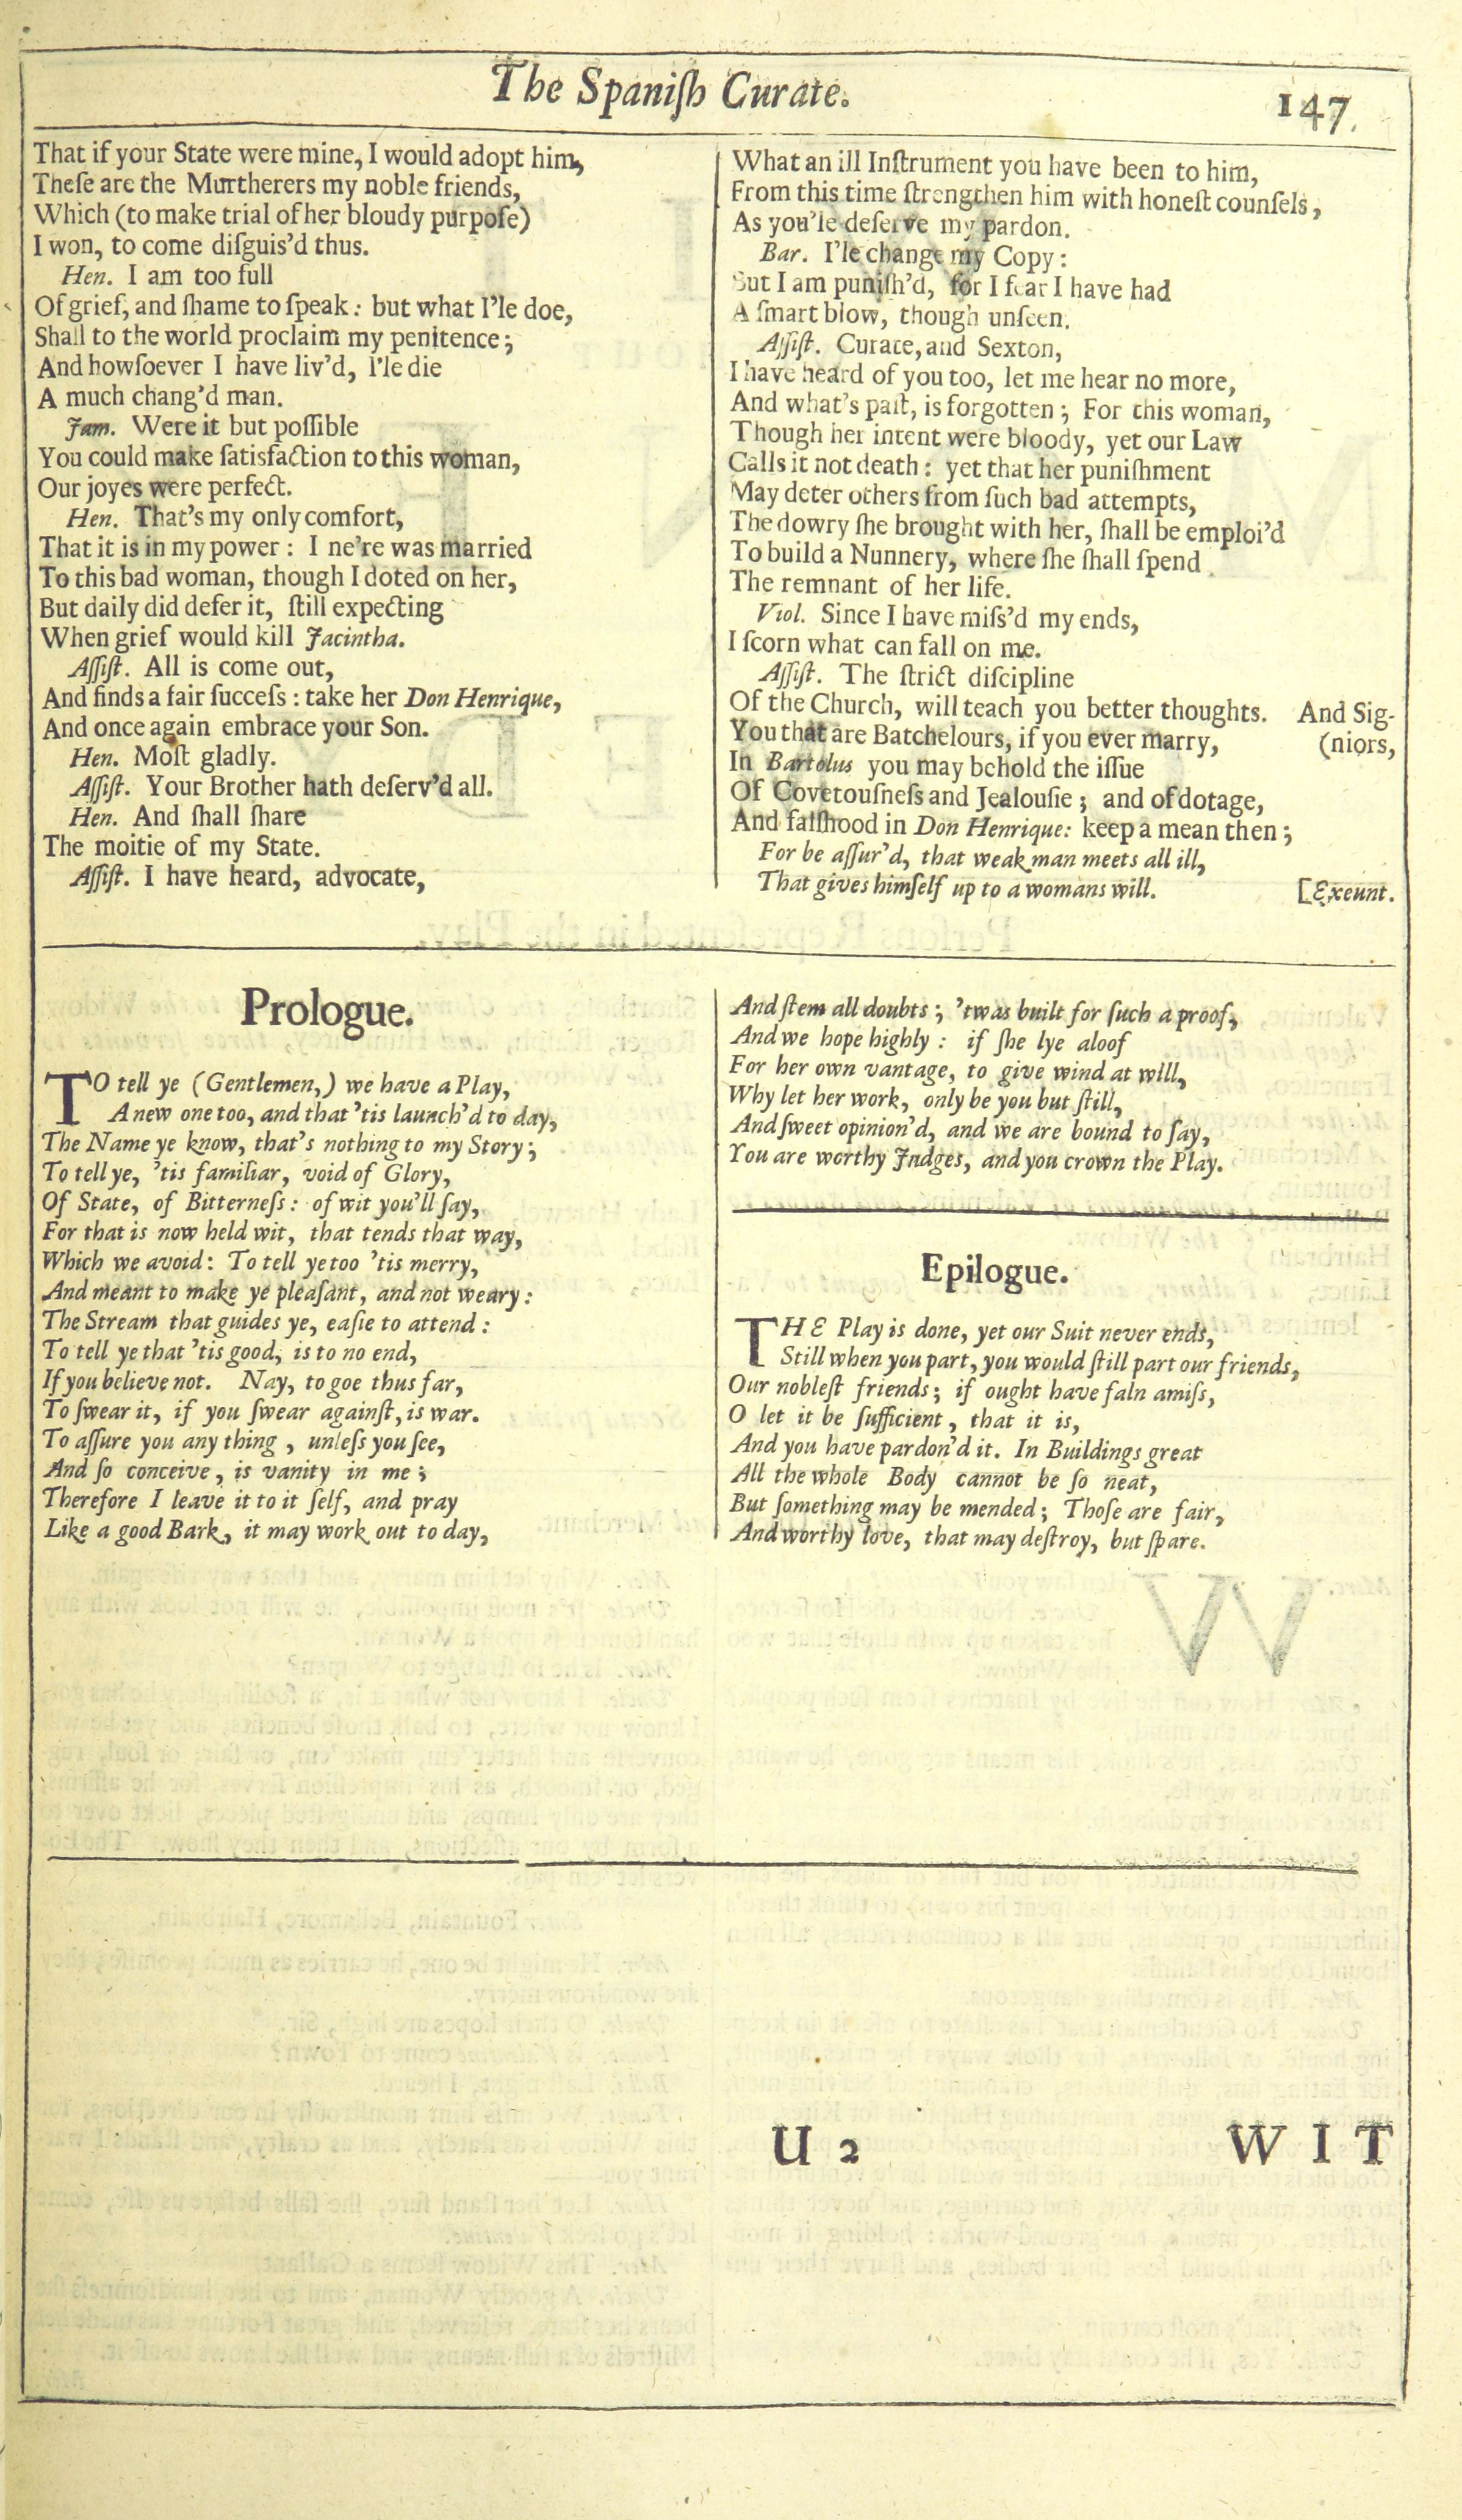 The Spaniſh Curate.
147.
That if your State were mine, I would adopt him,
Theſe are the Murtherers my noble friends,
Which (to make trial of her bloudy purpoſe)
I won, to come diſguis'd thus.
Hen. I am too full
Of grief, and ſhame to ſpeak: but what I'le doe,
Shall to the world proclaim my penitence;
And howſoever I have liv'd, I'le die
A much chang'd man.
Jam. Were it but poſſible
You could make ſatisfaction to this woman,
Our joyes were perfect.
Hen. That's my only comfort,
That it is in my power: I ne're was married
To this bad woman, though I doted on her,
But daily did defer it, ſtill expecting
When grief would kill Jacintha.
Aſſiſt. All is come out,
And finds a fair ſucceſs: take her Don Henrique,
And once again embrace your Son.
Hen. Moſt gladly.
Aſſiſt. Your Brother hath deſerv'd all.
Hen. And ſhall ſhare
The moitie of my State.
Aſſiſt. I have heard, advocate,
What an ill Inſtrument you have been to him,
From this time ſtrengthen him with honeſt counſels,
As you'le deſerve my pardon.
Bar. I'le change my Copy:
But I am puniſh'd, for I fear I have had
A ſmart blow, though unſeen.
Aſſiſt. Curate, and Sexton,
I have heard of you too, let me hear no more,
And what's paſt, is forgotten; For this woman,
Though her intent were bloody, yet our Law
Calls it not death: yet that her puniſhment
May deter others from ſuch bad attempts,
The dowry ſhe brought with her, ſhall be emploi'd
To build a Nunnery, where ſhe ſhall ſpend
The remnant of her life.
Viol. Since I have miſs'd my ends,
I ſcorn what can fall on me.
Aſſiſt. The ſtrict diſcipline
Of the Church, will teach you better thoughts. And Sig-
You that are Batchelours, if you ever marry, (niors,
In Bartolus you may behold the iſſue
Of Covetouſneſs and Jealouſie; and of dotage,
And falſhood in Don Henrique: keep a mean then;
For be aſſur'd, that weak man meets all ill,
That gives himſelf up to a womans will. [Exeunt.
Prologue.
TO tell ye (Gentlemen,) we have a Play,
A new one too, and that 'tis launch'd to day,
The Name ye know, that's nothing to my Story;
To tell ye, 'tis familiar, void of Glory,
Of State, of Bitterneſs: of wit you'll ſay,
For that is now held wit, that tends that way,
Which we avoid: To tell ye too 'tis merry,
And meant to make ye pleaſant, and not weary:
The Stream that guides ye, eaſie to attend:
To tell ye that 'tis good, is to no end,
If you believe not. Nay, to goe thus far,
To ſwear it, if you ſwear againſt, is war.
To aſſure you any thing, unleſs you ſee,
And ſo conceive, is vanity in me;
Therefore I leave it to it ſelf, and pray
Like a good Bark, it may work out to day,
And ſtem all doubts; 'twas built for ſuch a proof,
And we hope highly: if ſhe lye aloof
For her own vantage, to give wind at will,
Why let her work, only be you but ſtill,
And ſweet opinion'd, and we are bound to ſay,
You are worthy Judges, and you crown the Play.
Epilogue.
THE Play is done, yet our Suit never ends,
Still when you part, you would ſtill part our friends,
Our nobleſt friends; if ought have faln amiſs,
O let it be ſufficient, that it is,
And you have pardon'd it. In Buildings great
All the whole Body cannot be ſo neat,
But ſomething may be mended; Thoſe are fair,
And worthy love, that may deſtroy, but ſpare.
U 2
WIT